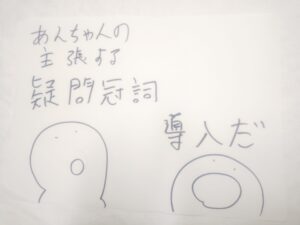 あんちゃんの
主張する
疑問冠詞
導入だ